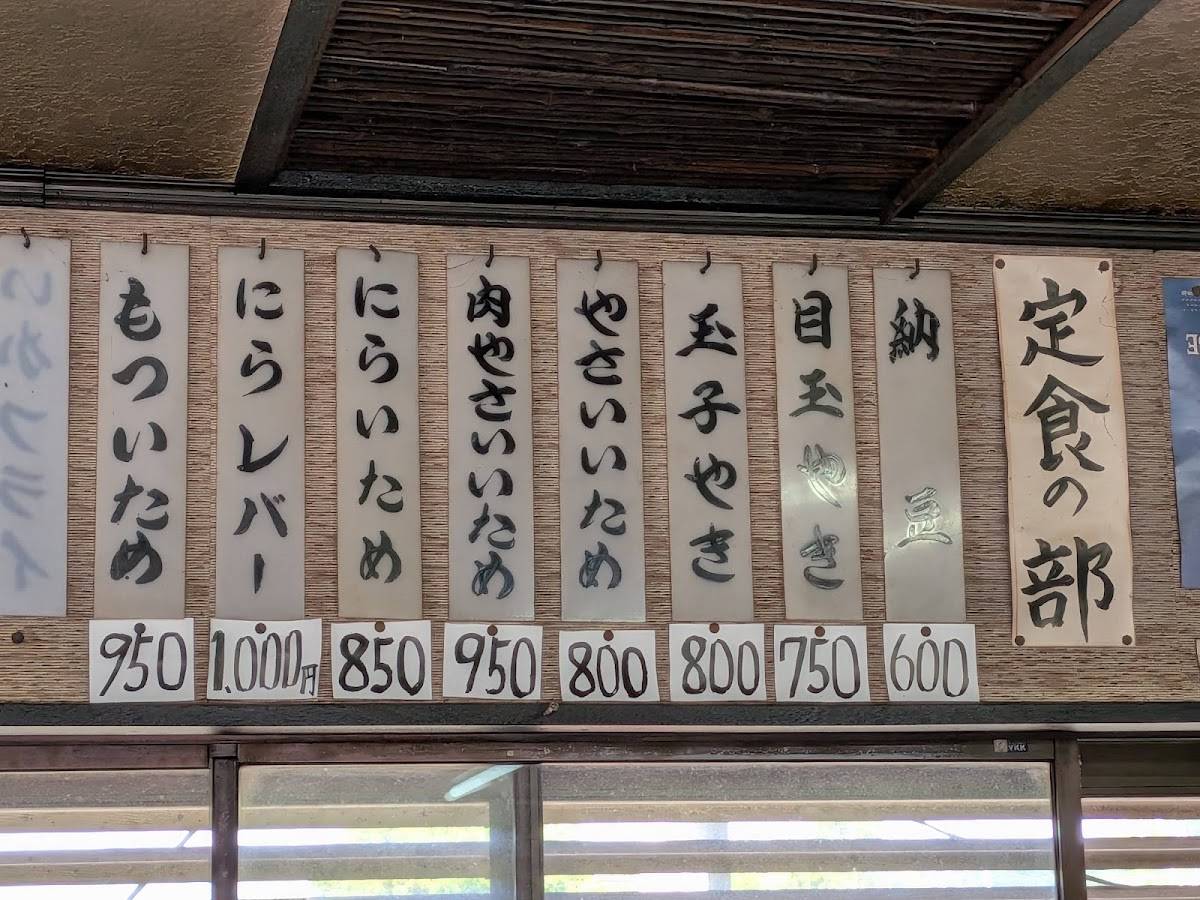 定食の部
納豆
600
目玉やき
750
玉子やき
800
やさいいため
800
肉やさいいため
950
にらいため
850
にらレバー
1.000円
もついため
950
いかフライ
YKK